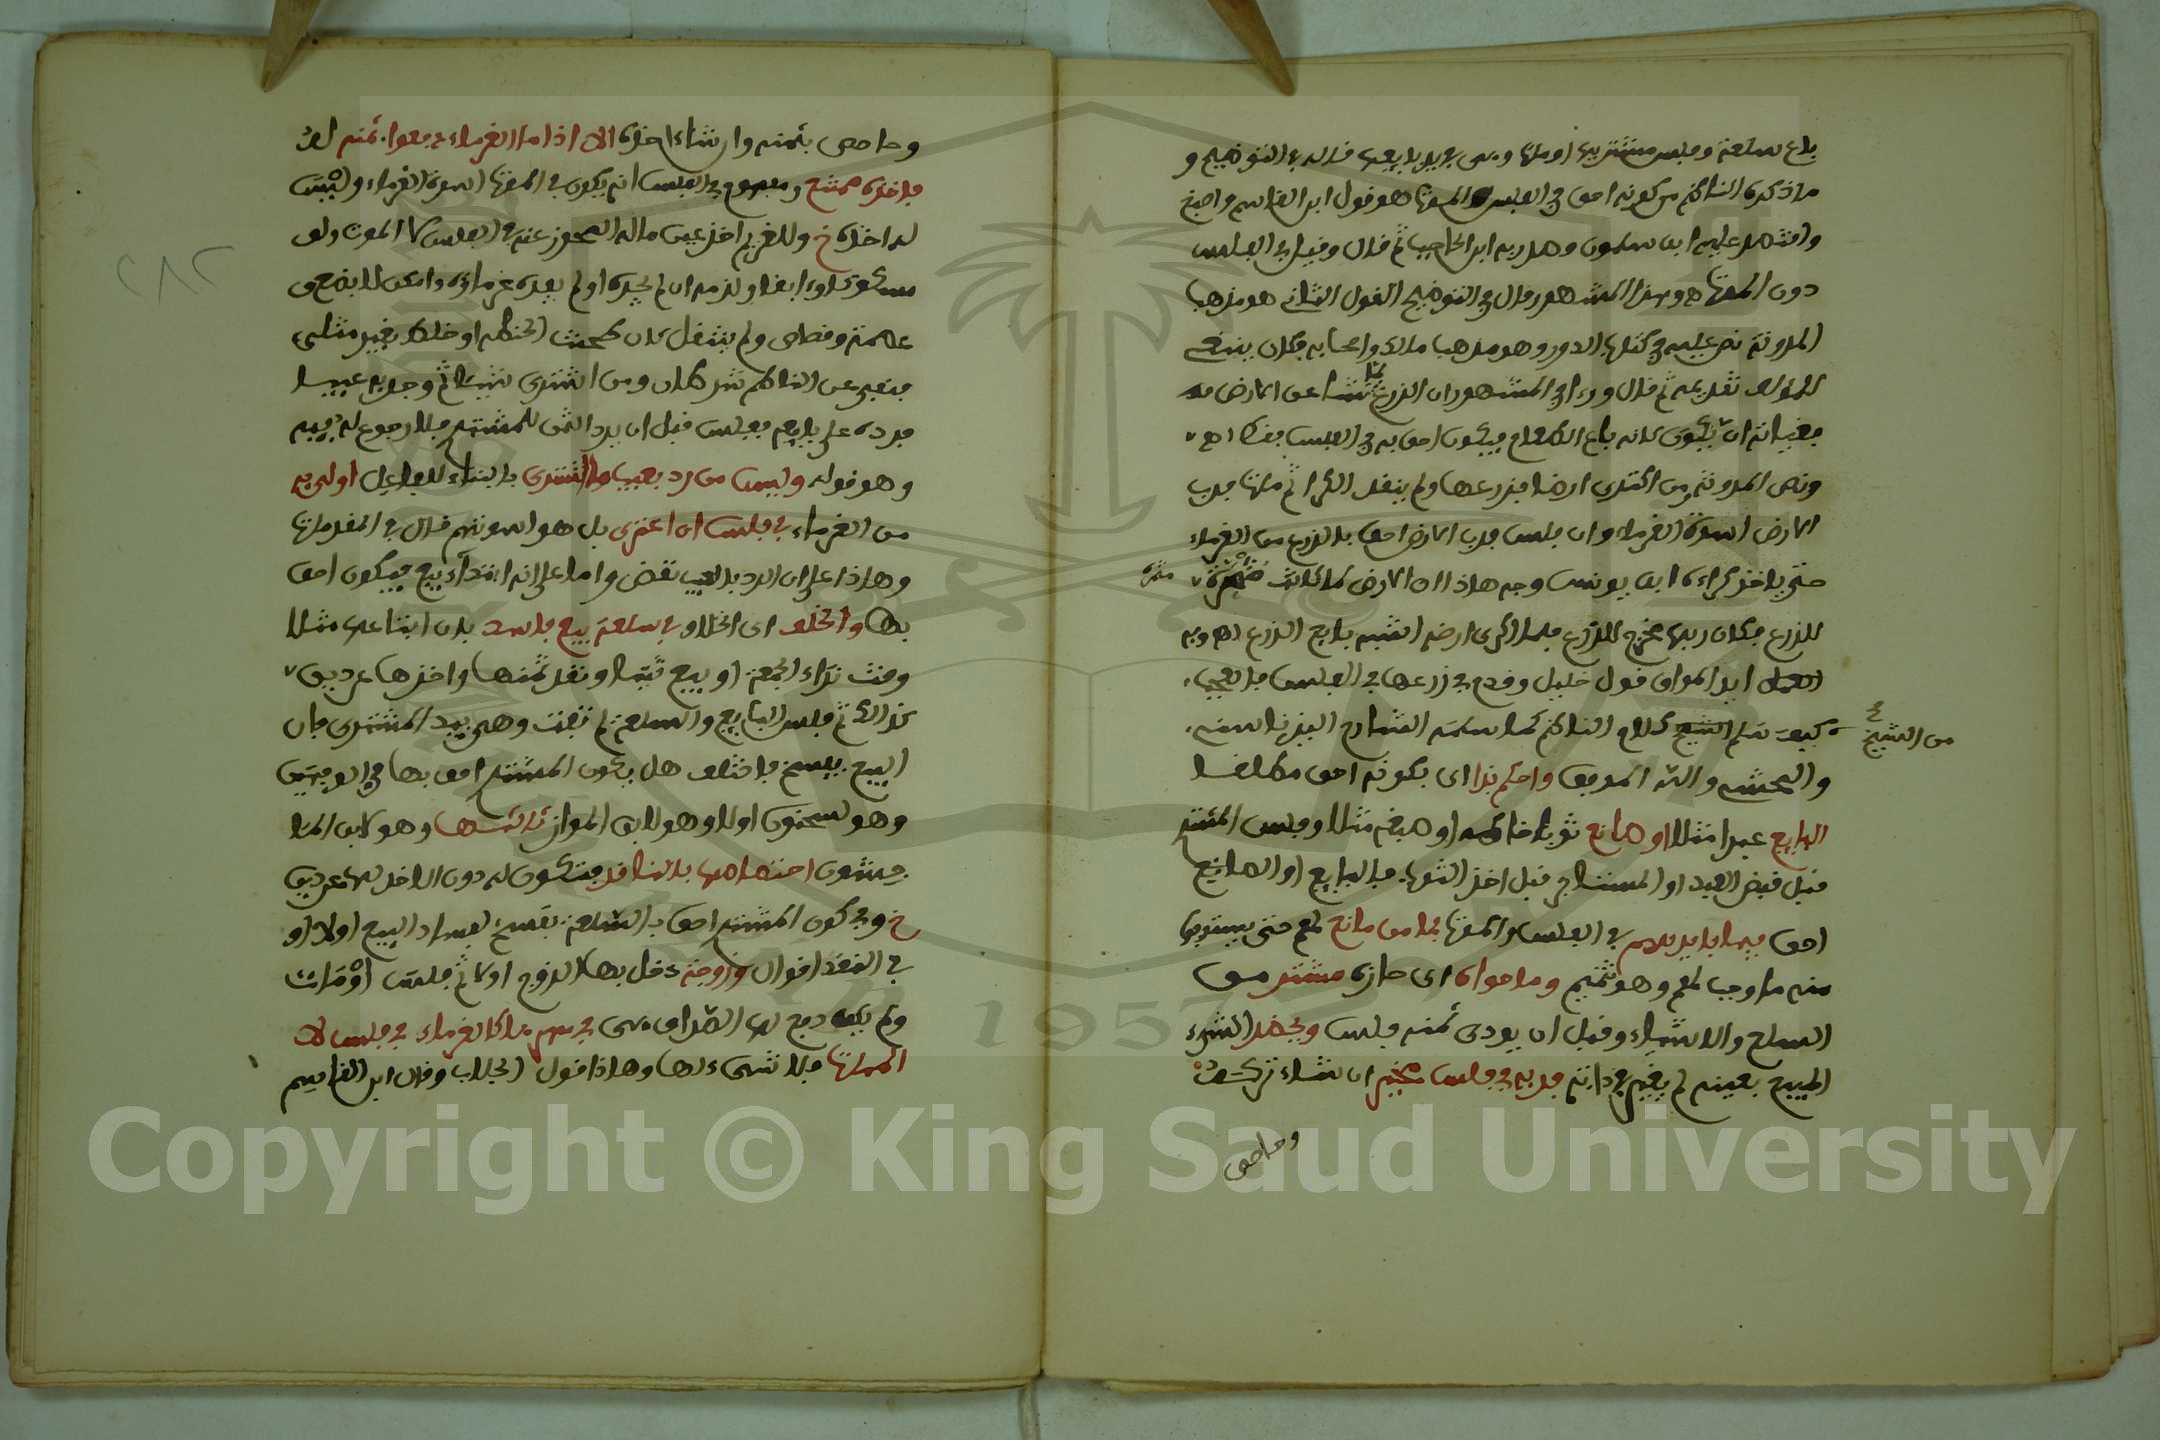 باع سلعة وفلس مشتريها او مات وهى بيد بايعها قاله في التوضيح و
ما ذكره الناظم من كونه احق في الفلس والموت هو قول ابن القاسم واصبغ
واقتصر عليه ابن سلمون وصدر به ابن الحاجب ثم قال وقيل في الفلس
دون الموت اه وهذا المشهور قال في التوضيح القول الثاني هو مذهب
المدونة نص عليه في كتاب الدور وهو مذهب مالك واصحابه فكان ينبغي
للمؤلف تقديمه ثم قال وراى في المشهور ان الزرع لما نشا عن الارض
فغايته ان يكون كانه باع الطعام فيكون احق به في الفلس فقط اه
ونص المدونة ومن اكترى ارضا فزرعها ولم ينقد الكرا ثم مات فرب
الارض اسوة الغرماء وان فلس فرب الارض احق بالزرع من الغرماء
حتى ياخذ كراءه ابن يونس وجه هاذا ان الارض لما كانت
مثمرة
للزرع فكان ربها مخرج للزرع فلما اكرى ارضه اشبه بايع الزرع اه وبه
ايد المواق قول خليل وقدم في زرعها في الفلس فالعجب
كيف سلم كلام الناظم كما سلمه الشارح اليزناسنى
من الشيخ
والمحشى والله الموفق واحكم بذا اى بكونه احق مطلقا
البايع عبدا مثلا او صانع ثوبا خاطه او صبغه مثلا وفلس المشترى
قبل قبض العبد او المستاجر قبل اخذ الثوب فالبايع او الصانع
احق فيما بايديهم في الفلس والموت فما من مانع لهم حتى يستوفوا
منه ما وجب لهم وهو ثمنهم وما حواه اى حازه مشتر من
السلع والاشياء وقبل ان يودى ثمنه فلس ويحضر الشىء
المبيع بعينه لم يتغير في ذاته فربه في فلس مخير ان شاء تركه
وحاصص
وحاصص بثمنه وان شاء اخذه الا اذا ما الغرماء دفعوا ثمنه له
فاخذه ممتنع ومفهوم في الفلس انه يكون في الموت اسوة الغرماء وليس
له اخذه خ وللغريم اخذ عين ماله المحوز عنه في الفلس لا الموت ولو
مسكوكا وابقا ولزمه ان لم يجده او لم يفده غرماؤه وامكن لا بضع و
عصمة وقصاص ولم ينتقل لا ان طحنت الحنطة او خلط بغير مثلى
فبقى عن الناظم شرطان ومن اشترى شيئا ثم وجد به عيبا
فرده على بايعه ففلس قبل ان يرد الثمن للمشترى فلا رجوع له فيه
وهو قوله وليس من رد بعيب ما اشترى بالبناء للفاعل اولى به
من الغرماء في فلس ان اعترى بل هو اسوتهم قال في المقدمات
وهاذا على ان الرد بالعيب نقض واما على انه ابتداء بيع فيكون احق
بها والخلف اى الخلاف في سلعة بيع فاسد بان ابتاعها مثلا
وقت نداء الجمعة او بيع ثنيا ونقد ثمنها او اخذها عن دين
كذالك ثم فلس البايع والسلعة لم تفت وهى بيد المشترى فان
البيع يفسخ فاختلف هل يكون المشترى احق بها في الوجهين
وهو لسحنون اولا وهو لابن المواز ثالثها وهو لابن الما
جشون اختصاصها بالناقد فتكون له دون الاخذ لها عن دين
خ وفي كون المشترى احق بالسلعة يفسخ لفساد البيع اولا او
في النقد اقوال وزوجة دخل بها الزوج او لا ثم فلس او مات
ولم يكن دفع لها الصداق فهى في مهرها كالغرماء في فلس لا
الممات فلا شىء لها وهاذا قول الجلاب وقال ابن القاسم
٢٨٢
Copyright © King Saud University
1957